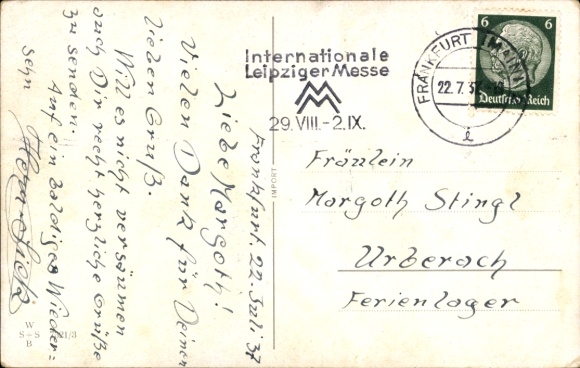 Frankfurt. 22 Juli 37
Liebe Margoth!
Vielen Dank für Deinen
lieben Gruß.
Will es nicht versäumen
auch Dir recht herzliche Grüße
zu senden.
Auf ein baldiges Wieder=
sehn
W
S+S
B
21/3
IMPORT
Internationale
Leipziger Messe
MM
29.VIII.-2.IX.
FRANKFURT (MAIN)
22.7.37
i
6 6
Deutsches Reich
Fräulein
Margoth Stingl
Urberach
Ferienlager